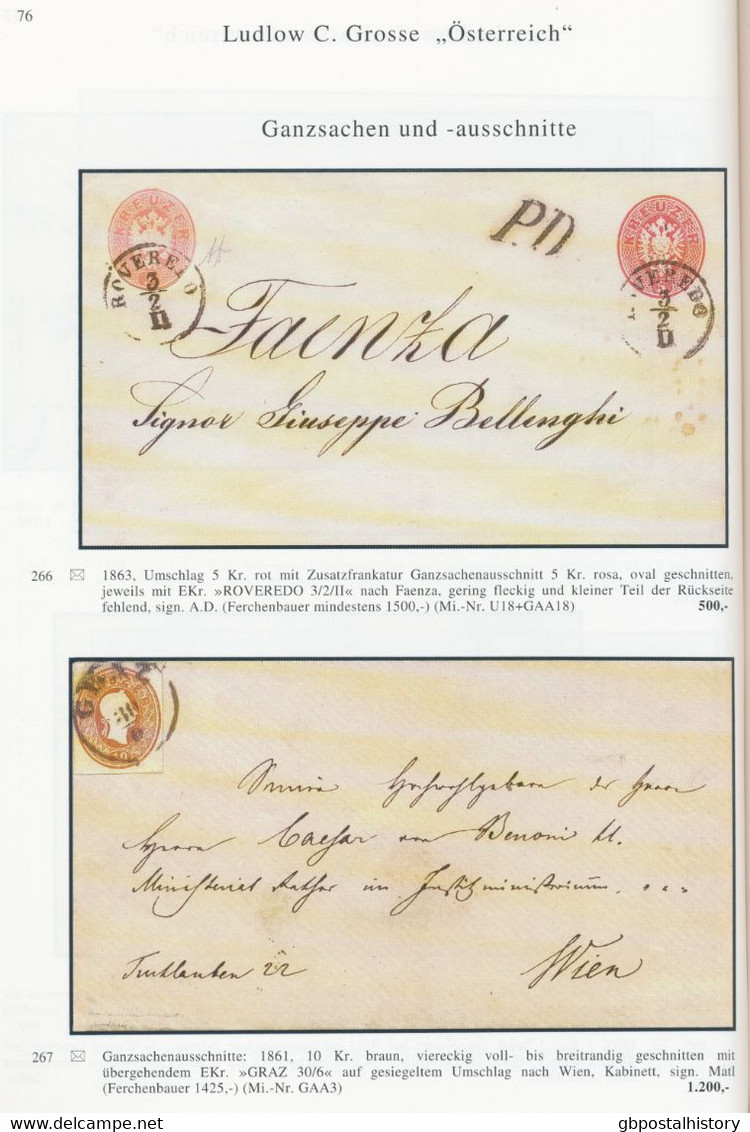 76
Ludlow C. Grosse „Österreich“
Ganzsachen und -ausschnitte
KREUZER
KREUZER
P.D.
ROVEREDO
3/2
II
ROVEREDO
3/2
II
Faenza
Signor Giuseppe Bellenghi
266 ✉ 1863, Umschlag 5 Kr. rot mit Zusatzfrankatur Ganzsachenausschnitt 5 Kr. rosa, oval geschnitten,
jeweils mit EKr. »ROVEREDO 3/2/II« nach Faenza, gering fleckig und kleiner Teil der Rückseite
fehlend, sign. A.D. (Ferchenbauer mindestens 1500,-) (Mi.-Nr. U18+GAA18) 500,-
GRAZ
Seiner Hochwohlgeboren des Herrn
Herrn Caesar von Benoni
Ministerial Rathes im Justizministerium
Tuchlauben 22 Wien
267 ✉ Ganzsachenausschnitte: 1861, 10 Kr. braun, viereckig voll- bis breitrandig geschnitten mit
übergehendem EKr. »GRAZ 30/6« auf gesiegeltem Umschlag nach Wien, Kabinett, sign. Matl
(Ferchenbauer 1425,-) (Mi.-Nr. GAA3) 1.200,-
gbpostalhistory